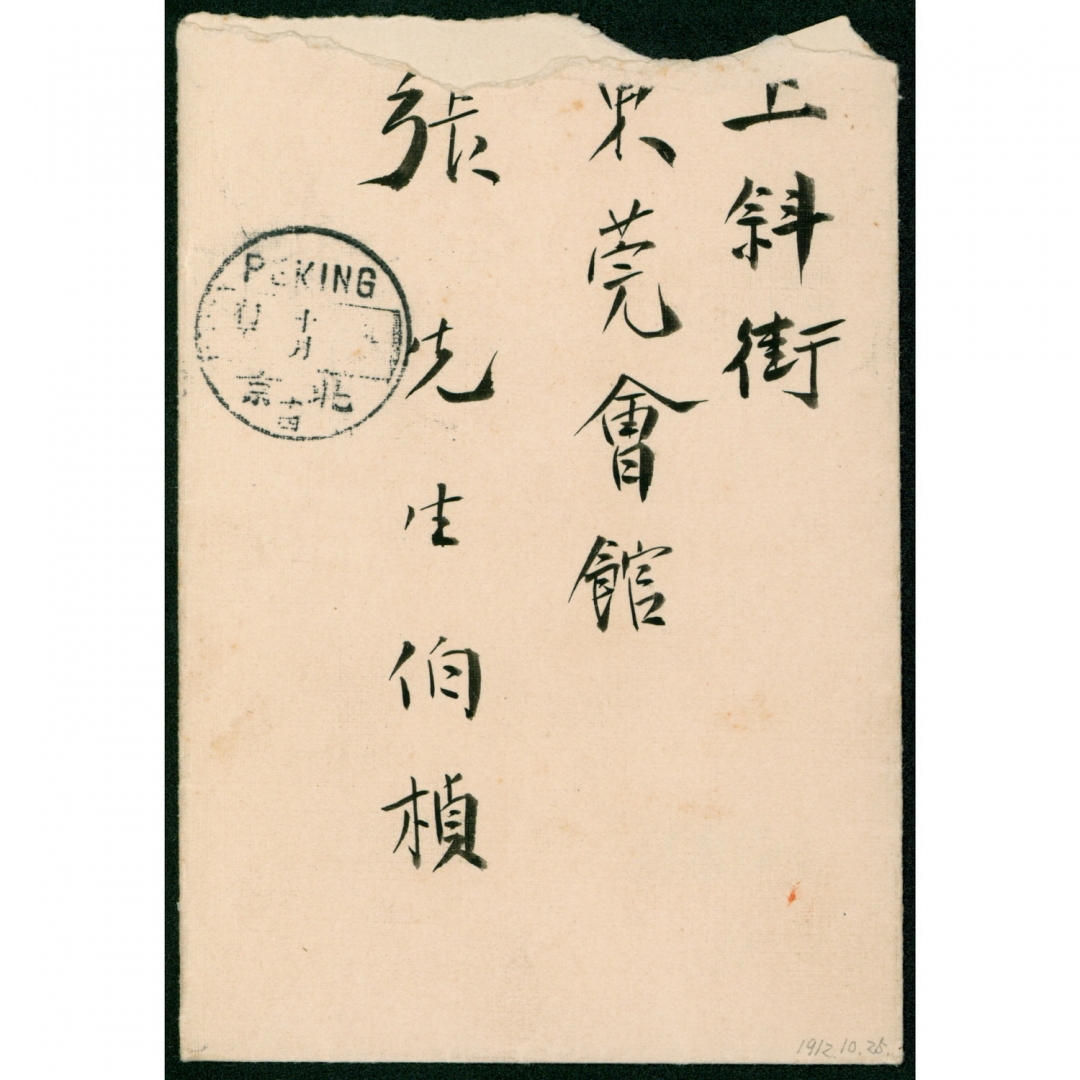 上斜街
東莞會館
張先生伯楨
PEKING
十月
北京
1912.10.25.